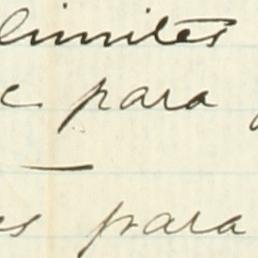 limites
para
para